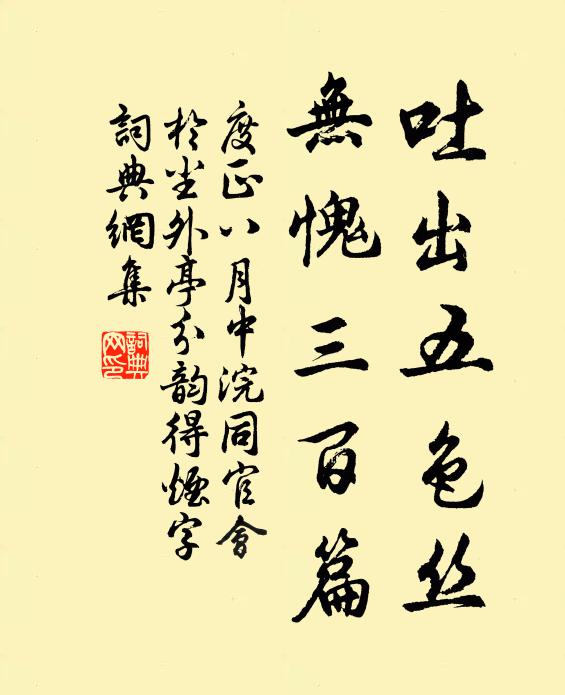 吐出五色丝
無愧三百篇
度正八月中浣同官會
於坐外亭分韵得煙字
詞典網集
詞典网印